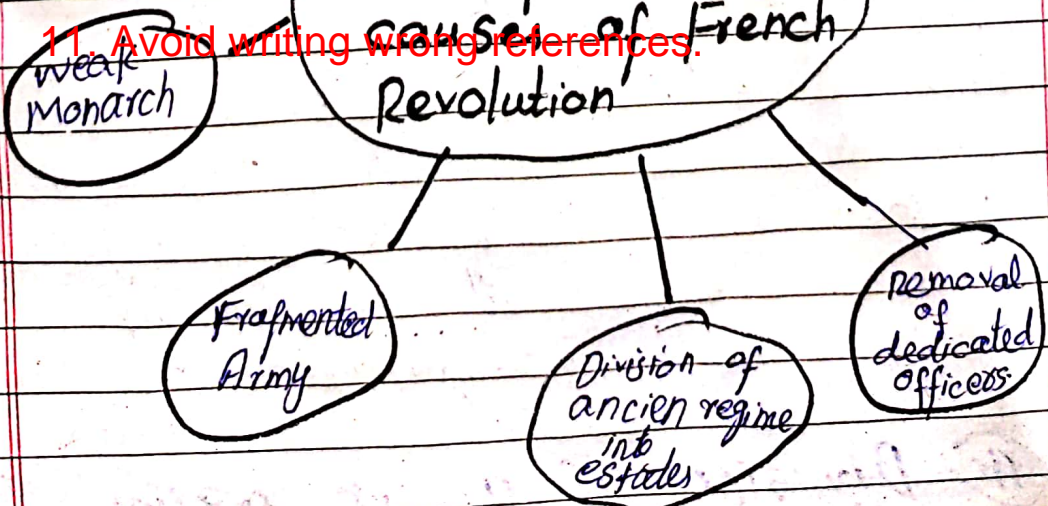 11. Avoid writing wrong references.
causes of French
Revolution
weak
Monarch
Fragmented
Army
Division of
ancien regime
into
estates
Removal
of
dedicated
officers.